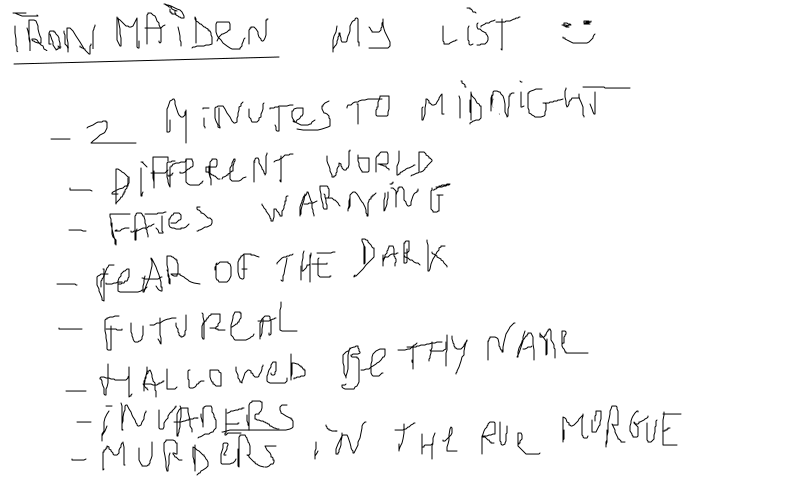 IRON MAIDEN MY LIST :)
- 2 MINUTES TO MIDNIGHT
- DIFFERENT WORLD
- FATES WARNING
- FEAR OF THE DARK
- FUTUREAL
- HALLOWED BE THY NAME
- INVADERS
- MURDERS IN THE RUE MORGUE